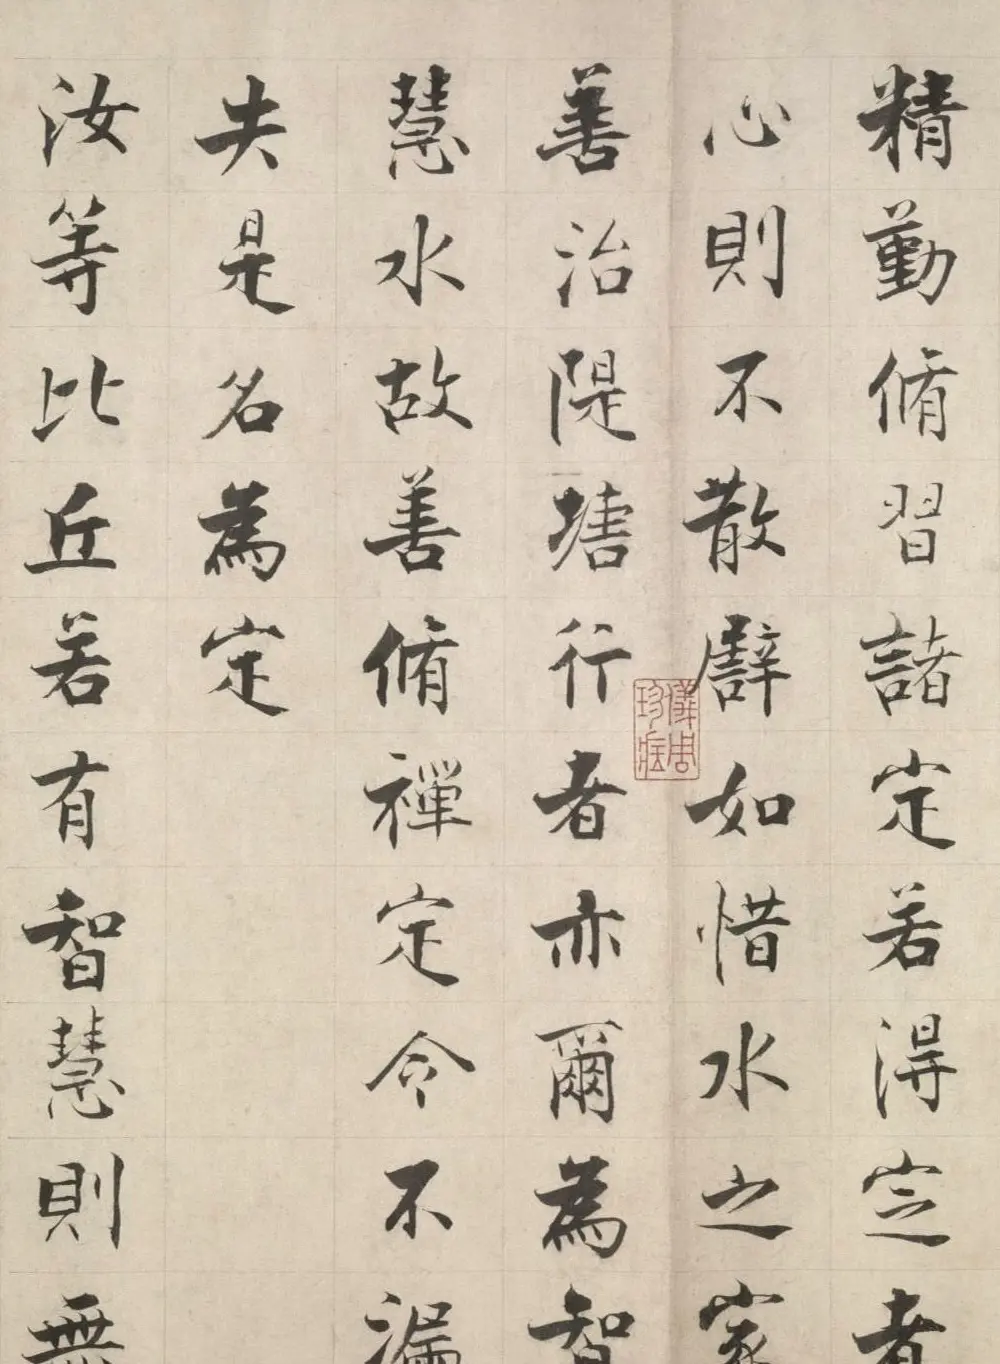 精勤脩習諸定若得定者
心則不散譬如惜水之家
善治隄塘行者亦爾為智
慧水故善脩禪定令不漏
失是名為定
汝等比丘若有智慧則無
儀周珍藏